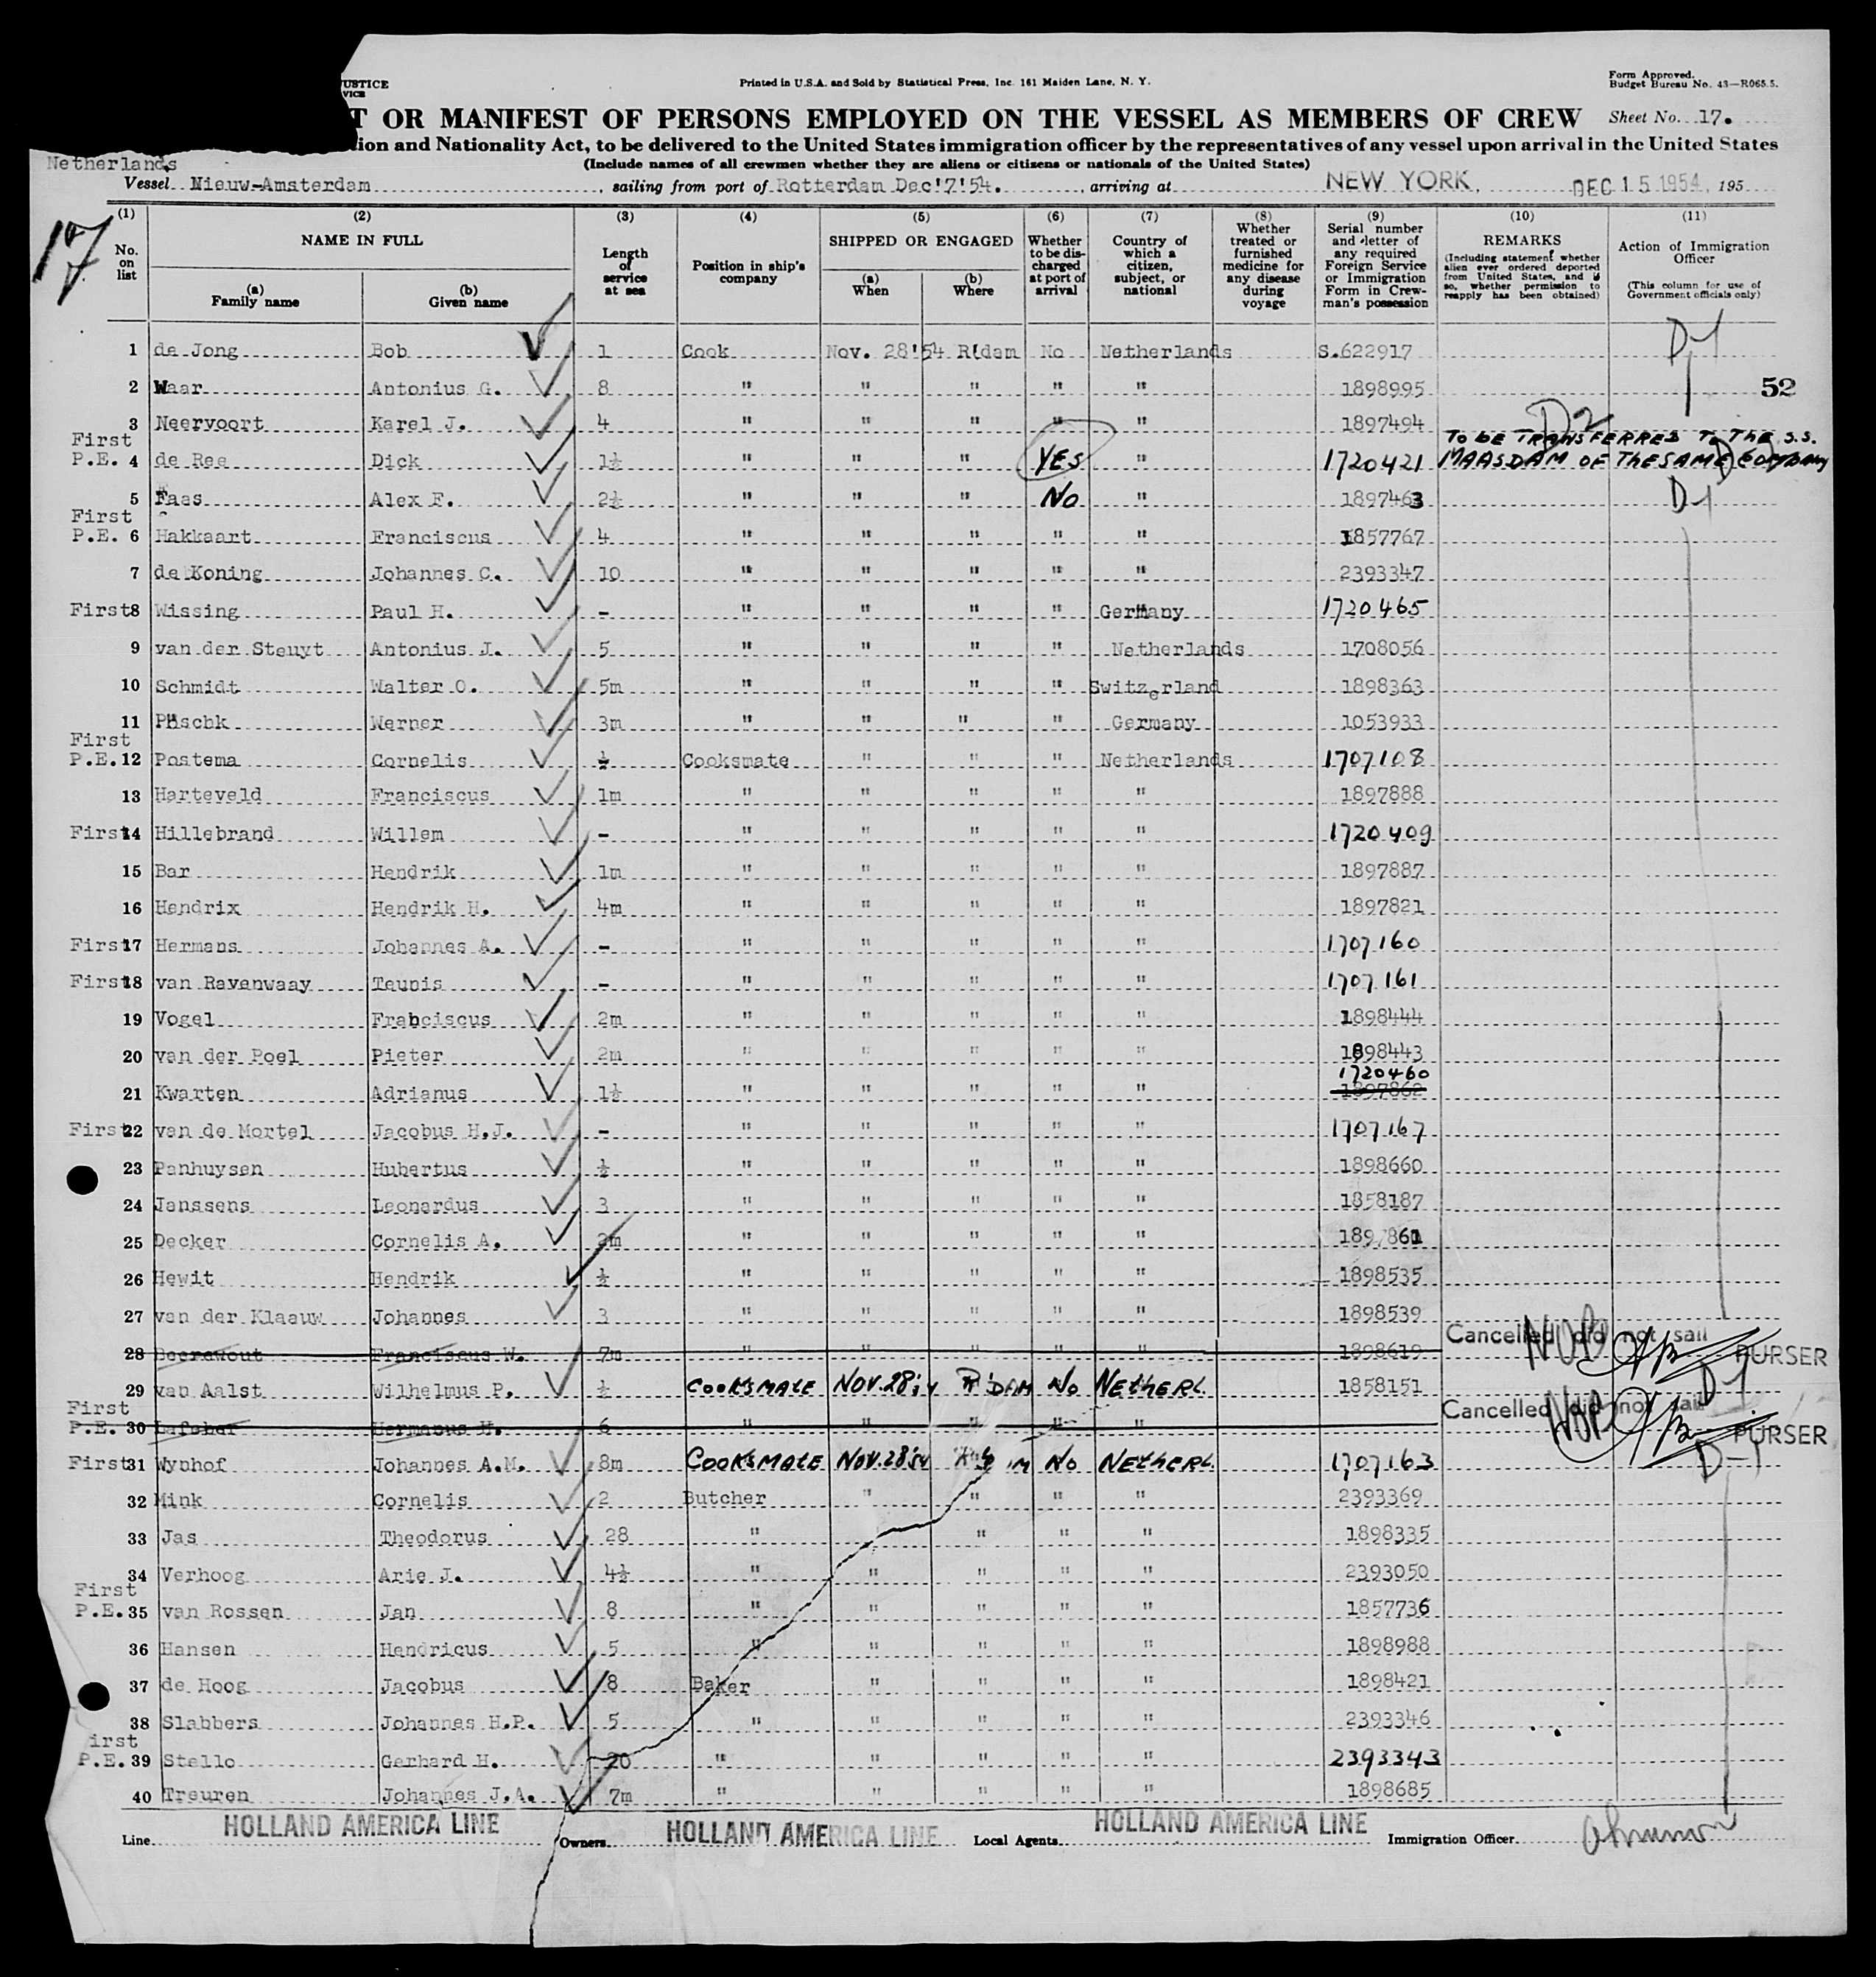 USTICE
VICE
Printed in U.S.A. and Sold by Statistical Press, Inc. 161 Maiden Lane, N. Y.
Form Approved.
Budget Bureau No. 43—R065.5.
T OR MANIFEST OF PERSONS EMPLOYED ON THE VESSEL AS MEMBERS OF CREW Sheet No. 17.
tion and Nationality Act, to be delivered to the United States immigration officer by the representatives of any vessel upon arrival in the United States
(Include names of all crewmen whether they are aliens or citizens or nationals of the United States)
Netherlands
Vessel Nieuw-Amsterdam, sailing from port of Rotterdam Dec'7'54., arriving at NEW YORK, DEC 15 1954, 195
17
(1) (2) (3) (4) (5) (6) (7) (8) (9) (10) (11)
No. on list
NAME IN FULL
(a) Family name
(b) Given name
Length of service at sea
Position in ship's company
SHIPPED OR ENGAGED
(a) When
(b) Where
Whether to be discharged at port of arrival
Country of which a citizen, subject, or national
Whether treated or furnished medicine for any disease during voyage
Serial number and letter of any required Foreign Service or Immigration Form in Crewman's possession
REMARKS
(Including statement whether alien ever ordered deported from United States, and if so, whether permission to reapply has been obtained)
Action of Immigration Officer
(This column for use of Government officials only)
1 de Jong Bob 1 Cook Nov. 28'54 R'dam No Netherlands S.622917 D-1
2 Waar Antonius G. 8 " " " " " 1898995 52
3 Neervoort Karel J. 4 " " " " " 1897494 D2
First P.E. 4 de Ree Dick 1½ " " " YES " 1720421 To be TRANSFERRED To The S.S. MAASDAM OF THE SAME COMPANY
5 Faas Alex F. 2½ " " " No " 1897463 D-1
First P.E. 6 Hakkaart Franciscus 4 " " " " " 1857767
7 de Koning Johannes C. 10 " " " " " 2393347
First 8 Wissing Paul H. - " " " " Germany 1720465
9 van der Steuyt Antonius J. 5 " " " " Netherlands 1708056
10 Schmidt Walter O. 5m " " " " Switzerland 1898363
11 Werner 3m " " " " Germany 1053933
First P.E. 12 Postema Cornelis ½ Cooksmate " " " Netherlands 1707108
13 Harteveld Franciscus 1m " " " " " 1897888
First 14 Hillebrand Willem - " " " " " 1720409
15 Bar Hendrik 1m " " " " " 1897887
16 Hendrix Hendrik H. 4m " " " " " 1897821
First 17 Hermans Johannes A. - " " " " " 1707160
First 18 van Ravenwaay Teunis - " " " " " 1707161
19 Vogel Franciscus 2m " " " " " 1898444
20 van der Poel Pieter 2m " " " " " 1898443
21 Kwarten Adrianus 1½ " " " " " 1720460 1897862
First 22 van de Mortel Jacobus H.J. - " " " " " 1707167
23 Panhuysen Hubertus ½ " " " " " 1898660
24 Janssens Leonardus 3 " " " " " 1858187
25 Decker Cornelis A. 2m " " " " " 1897861
26 Hewit Hendrik ½ " " " " " 1898535
27 van der Klaauw Johannes 3 " " " " " 1898539
28 Beerewout Franciscus W. 7m " " " " " 1898619 Cancelled did not sail PURSER
29 van Aalst Wilhelmus P. ½ COOKSMATE NOV.28'54 R'DAM No NETHERL. 1858151 D-1
First P.E. 30 Lafeber Hermanus H. 6 " " " " " Cancelled did not sail PURSER
First 31 Wynhof Johannes A.M. 8m COOKSMATE NOV.28'54 No NETHERL. 1707163 D-1
32 Mink Cornelis 2 Butcher " " " " 2393369
33 Jas Theodorus 28 " " " " 1898335
34 Verhoog Arie J. 4½ " " " " " 2393050
First P.E. 35 van Rossen Jan 8 " " " " " 1857736
36 Hansen Hendricus 5 " " " " " 1898988
37 de Hoog Jacobus 8 Baker " " " " 1898421
38 Slabbers Johannes H.P. 5 " " " " " 2393346
irst P.E. 39 Stello Gerhard H. 20 " " " " " 2393343
40 Treuren Johannes J.A. 7m " " " " " 1898685
Line HOLLAND AMERICA LINE Owners HOLLAND AMERICA LINE Local Agents HOLLAND AMERICA LINE Immigration Officer